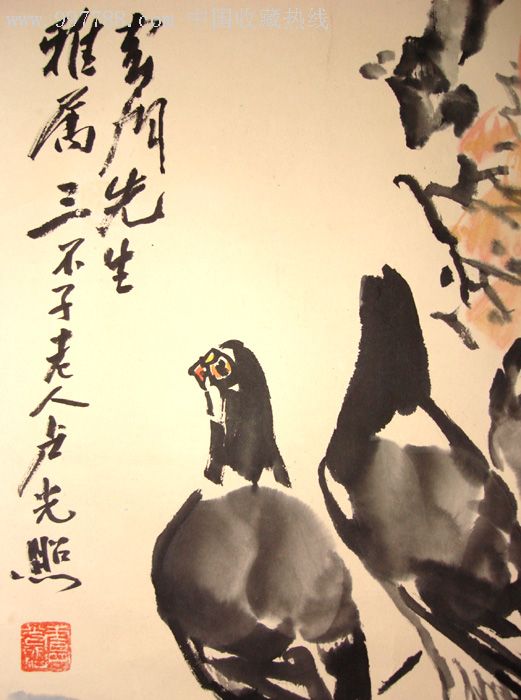 www.997788.com-中国收藏热线
先生
雅属 三不子老人卢光照